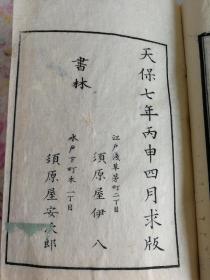 天保七年丙申四月求版
書林
江戸浅草茅町二丁目
須原屋伊八
水戸下町本一丁目
須原屋安次郎